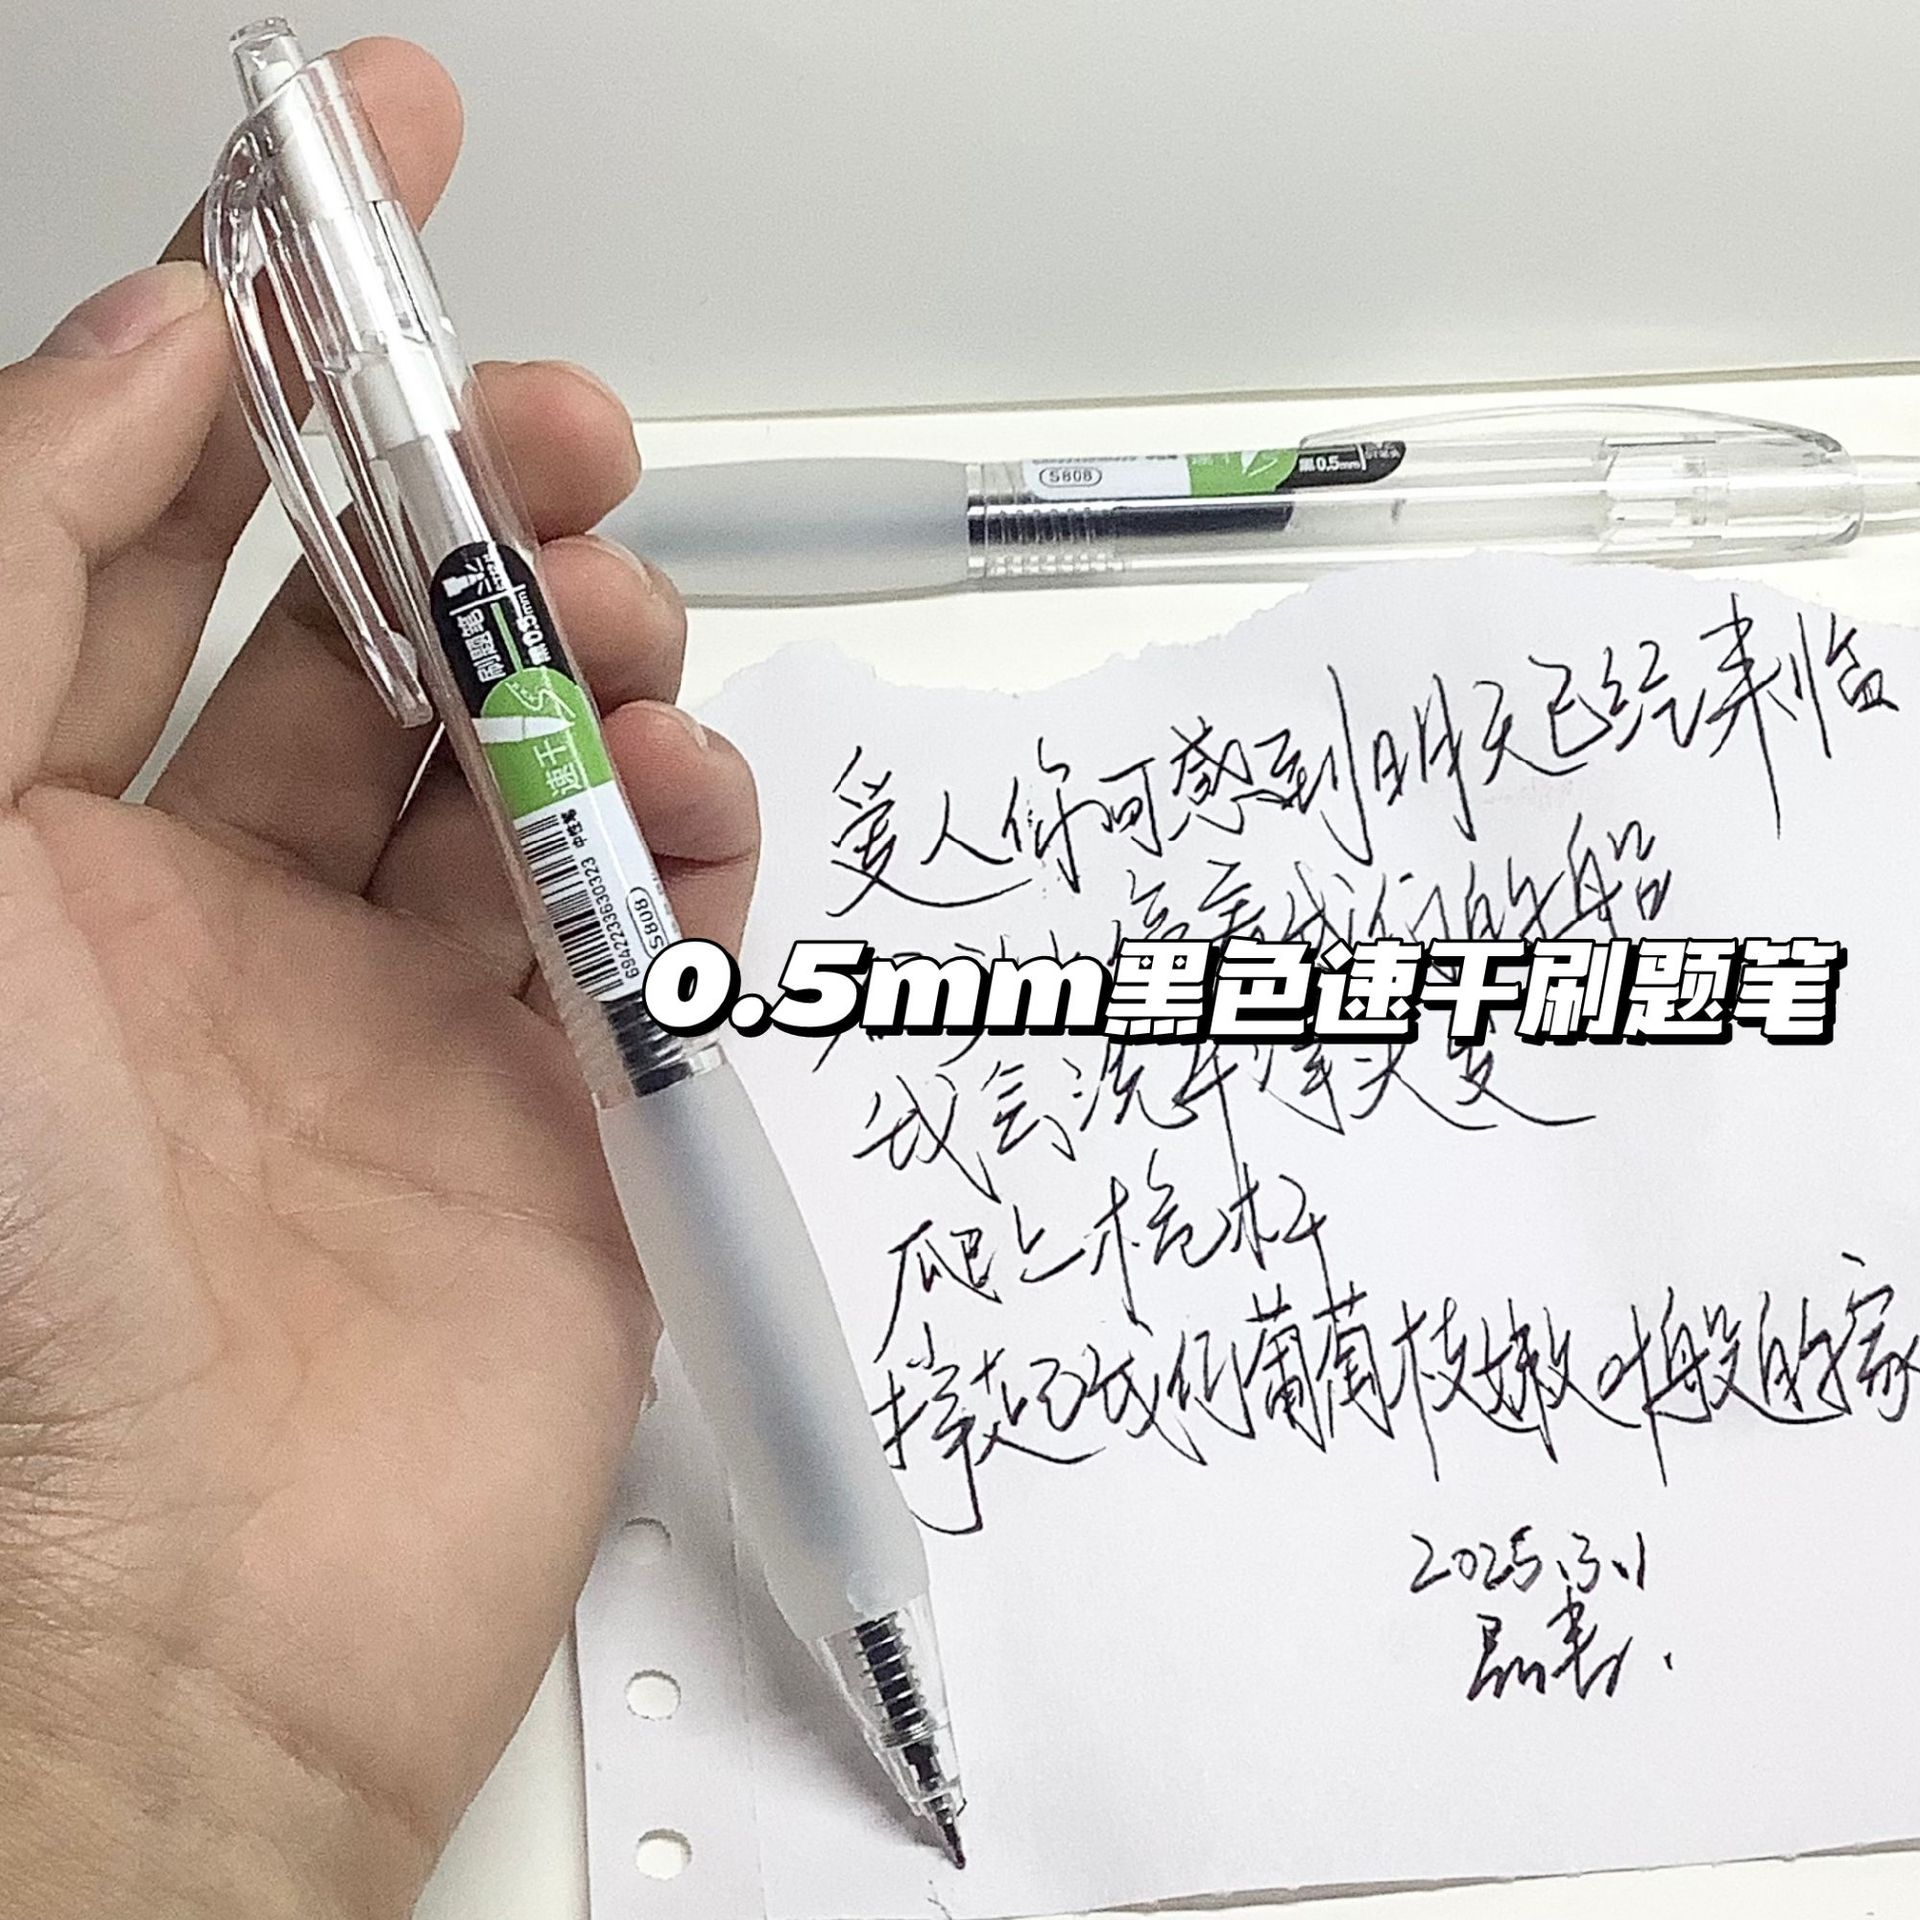 S808
速干
黑0.5mm
ST笔头
刷题笔
黑0.5mm
速干
中性笔
6942233630323
S808
爱人你可感到明天已经来临
我们的船
0.5mm黑色速干刷题笔
我会洗干净头发
爬上桅杆
撑起我们葡萄枝嫩叶般的家
2025.3.1